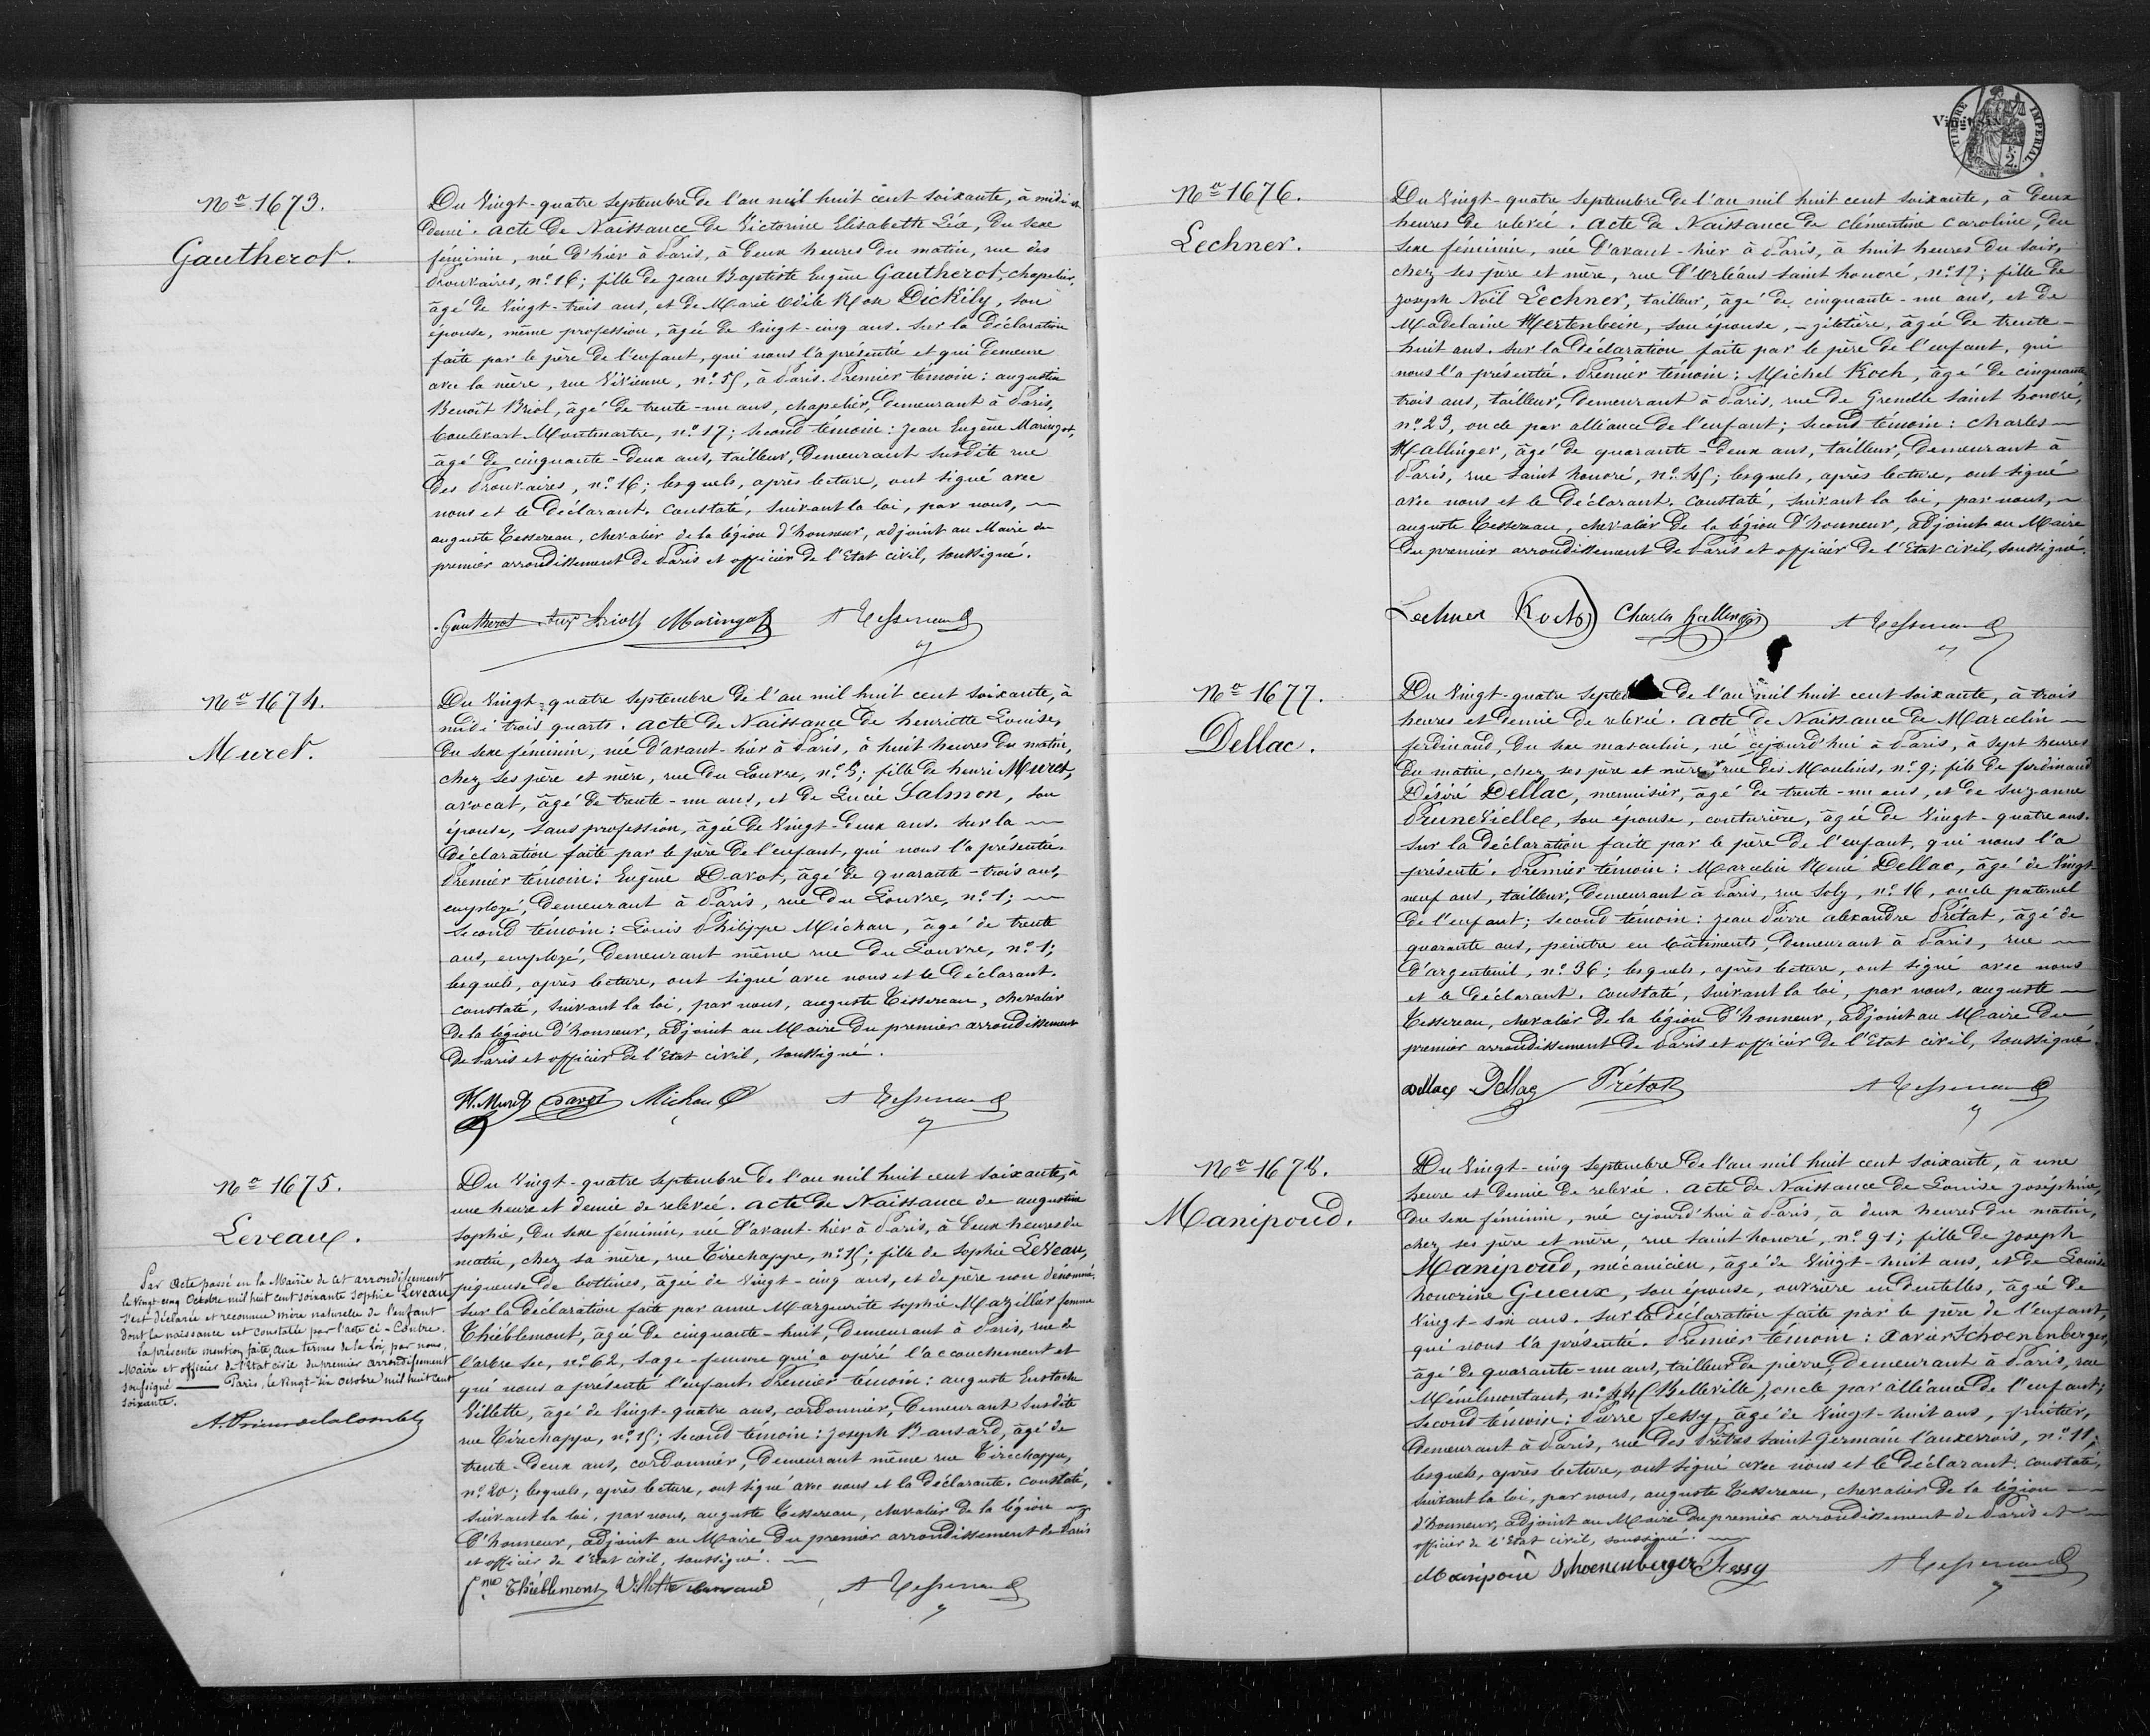 No 1673.
Gautherot.
Du Vingt-quatre Septembre de l'an mil huit cent soixante, à midi et
demi. Acte de Naissance de Victorine Elisabeth Léa, du sexe
féminin, née d'hier à Paris, à deux heures du matin, rue des
Prouvaires, no 16; fille de Jean Baptiste Eugène Gautherot, chapelier,
âgé de vingt-trois ans, et de Marie Odile Rose Dickily, son
épouse, même profession, âgée de vingt-cinq ans. Sur la déclaration
faite par le père de l'enfant, qui nous l'a présenté et qui demeure
avec la mère, rue Vivienne, no 55, à Paris. Premier témoin: Augustin
Benoît Briol, âgé de trente-un ans, chapelier, demeurant à Paris,
boulevart Montmartre, no 17; second témoin: Jean Eugène Maringot,
âgé de cinquante-deux ans, tailleur, demeurant susdite rue
des Prouvaires, no 16; lesquels, après lecture, ont signé avec
nous et le déclarant. Constaté, suivant la loi, par nous,
auguste Tessereau, chevalier de la légion d'honneur, adjoint au Maire du
premier arrondissement de Paris et officier de l'Etat civil, soussigné.
Gautherot Briol Maringot A Tessereau
No 1674.
Muret.
Du Vingt-quatre Septembre de l'an mil huit cent soixante, à
midi trois quarts. Acte de Naissance de henriette Louise,
du sexe féminin, née d'avant-hier à Paris, à huit heures du matin,
chez ses père et mère, rue du Louvre, no 5; fille de henri Muret,
avocat, âgé de trente-un ans, et de Lucie Salmon, son
épouse, sans profession, âgée de vingt-deux ans. Sur la
déclaration faite par le père de l'enfant, qui nous l'a présentée.
Premier témoin: Eugène Davot, âgé de quarante-trois ans,
employé, demeurant à Paris, rue du Louvre, no 1;
second témoin: Louis Philippe Michau, âgé de trente
ans, employé, demeurant même rue du Louvre, no 1;
lesquels, après lecture, ont signé avec nous et le déclarant.
constaté, suivant la loi, par nous, auguste Tessereau, chevalier
de la légion d'honneur, adjoint au Maire du premier arrondissement
de Paris et officier de l'Etat civil, soussigné.
H. Muret Davot Michau A Tessereau
No 1675.
Leveau.
Par Acte passé en la Mairie de cet arrondissement
le vingt-cinq Octobre mil huit cent soixante Sophie Leveau
s'est déclarée et reconnue mère naturelle de l'enfant
dont la naissance est constatée par l'acte ci-Contre.
La présente mention faite, aux termes de la loi, par nous,
Maire et officier de l'Etat civil du premier arrondissement
soussigné — Paris, le vingt-six octobre mil huit cent
soixante.
Du Vingt-quatre Septembre de l'an mil huit cent soixante, à
une heure et demie de relevée. Acte de Naissance de augustine
Sophie, du sexe féminin, née d'avant-hier à Paris, à deux heures du
matin, chez sa mère, rue Tirechappe, no 15; fille de Sophie Leveau,
piqueuse de bottines, âgée de vingt-cinq ans, et de père non dénommé.
Sur la déclaration faite par anne Marguerite Sophie Mazillier femme
Thiéblemont, âgée de cinquante-huit, demeurant à Paris, rue de
l'arbre sec, no 62, sage-femme qui a opéré l'accouchement et
qui nous a présenté l'enfant. Premier témoin: auguste Eustache
Villette, âgé de vingt-quatre ans, cordonnier, demeurant susdite
rue Tirechappe, no 15; second témoin: Joseph Bansard, âgé de
trente-deux ans, cordonnier, demeurant même rue Tirechappe,
no 20; lesquels, après lecture, ont signé avec nous et la déclarante. Constaté,
suivant la loi, par nous, auguste Tessereau, chevalier de la légion
d'honneur, adjoint au Maire du premier arrondissement de Paris
et officier de l'Etat civil, soussigné.
fme Thiéblemont Villette Bansard A Tessereau
Vingt six
TIMBRE IMPERIAL
2.
No 1676.
Lechner.
Du Vingt-quatre Septembre de l'an mil huit cent soixante, à deux
heures de relevée. Acte de Naissance de clémentine caroline, du
sexe féminin, née d'avant-hier à Paris, à huit heures du soir,
chez ses père et mère, rue d'Orléans saint honoré, no 17; fille de
Joseph Noël Lechner, tailleur, âgé de cinquante-un ans, et de
Madelaine Hertenbein, son épouse, giletière, âgée de trente-
huit ans. Sur la déclaration faite par le père de l'enfant, qui
nous l'a présenté. Premier témoin: Michel Koch, âgé de cinquante
trois ans, tailleur, demeurant à Paris, rue de Grenelle saint honoré,
no 23, oncle par alliance de l'enfant; second témoin: Charles
Hallinger, âgé de quarante-deux ans, tailleur, demeurant à
Paris, rue saint honoré, no 45; lesquels, après lecture, ont signé
avec nous et le déclarant. Constaté, suivant la loi, par nous,
auguste Tessereau, chevalier de la légion d'honneur, adjoint au Maire
du premier arrondissement de Paris et officier de l'Etat civil, soussigné.
Lechner Koch Charles Hallinger A Tessereau
No 1677.
Dellac.
Du Vingt-quatre Septembre de l'an mil huit cent soixante, à trois
heures et demie de relevée. Acte de Naissance de Marcelin
ferdinand, du sexe masculin, né cejourd'hui à Paris, à sept heures
du matin, chez ses père et mère, rue des Moulins, no 9; fils de ferdinand
Désiré Dellac, menuisier, âgé de trente-un ans, et de Suzanne
Prunevielle, son épouse, couturière, âgée de vingt-quatre ans.
Sur la déclaration faite par le père de l'enfant, qui nous l'a
présenté. Premier témoin: Marcelin René Dellac, âgé de vingt
neuf ans, tailleur, demeurant à Paris, rue Soly, no 16, oncle paternel
de l'enfant; second témoin: Jean Pierre alexandre Prétat, âgé de
quarante ans, peintre en bâtiments, demeurant à Paris, rue
d'argenteuil, no 36; lesquels, après lecture, ont signé avec nous
et le déclarant. Constaté, suivant la loi, par nous, auguste
Tessereau, chevalier de la légion d'honneur, adjoint au Maire du
premier arrondissement de Paris et officier de l'Etat civil, soussigné.
Dellac Dellac Prétat A Tessereau
No 1678.
Manipoud.
Du Vingt-cinq Septembre de l'an mil huit cent soixante, à une
heure et demie de relevée. Acte de Naissance de Louise Joséphine,
du sexe féminin, née cejourd'hui à Paris, à deux heures du matin,
chez ses père et mère, rue saint honoré, no 91; fille de Joseph
Manipoud, mécanicien, âgé de vingt-huit ans, et de Louise
honorine Gueux, son épouse, ouvrière en dentelles, âgée de
vingt-six ans. Sur la déclaration faite par le père de l'enfant,
qui nous l'a présenté. Premier témoin: Xavier Schoenenberger,
âgé de quarante-un ans, tailleur de pierre, demeurant à Paris, rue
Ménilmontant, no 44 (Belleville), oncle par alliance de l'enfant;
second témoin: Pierre Fessy, âgé de vingt-huit ans, fruitier,
demeurant à Paris, rue des Prêtres saint Germain l'auxerrois, no 11;
lesquels, après lecture, ont signé avec nous et le déclarant. Constaté,
suivant la loi, par nous, auguste Tessereau, chevalier de la légion
d'honneur, adjoint au Maire du premier arrondissement de Paris et
officier de l'Etat civil, soussigné.
Manipoud Schoenenberger Fessy A Tessereau